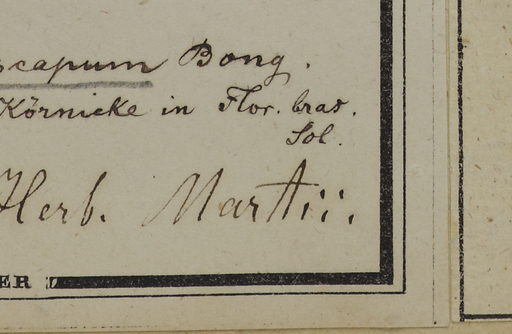 scapum Bong.
Körnicke in Flor. bras.
Sol.
Herb. Martii.
ER